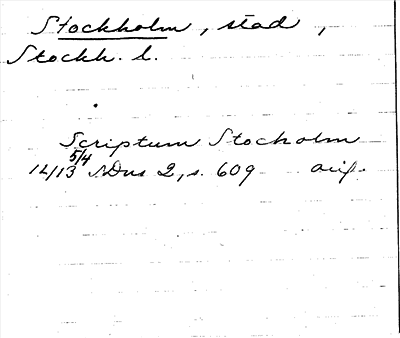 Stockholm, stad,
Stockh. l.
Scriptum Stocholm
5/4
1413 SDns 2, s. 609 orig.